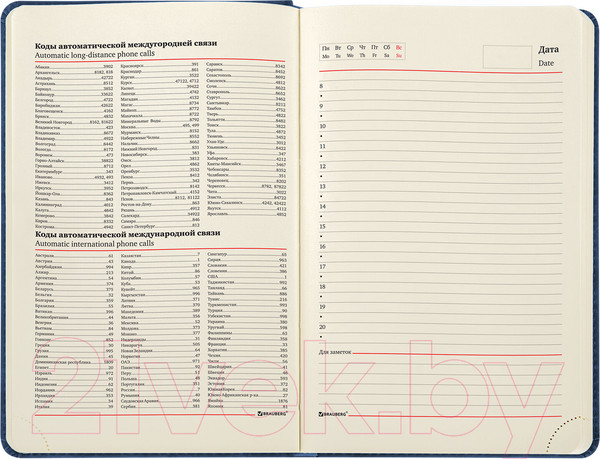 Коды автоматической междугородней связи
Automatic long-distance phone calls
Абакан 3902
Архангельск 8182, 818
Анадырь 42722
Астрахань 8512
Барнаул 3852
Белгород 4722
Биробиджан 42622
Благовещенск 4162
Брянск 4832
Великий Новгород 8162, 81622
Владивосток 423
Владикавказ 8672
Владимир 4922
Волгоград 8442
Вологда 8172
Воронеж 473
Горно-Алтайск 38822
Грозный 8712
Екатеринбург 343
Иваново 4932, 493
Ижевск 3412
Иркутск 3952
Йошкар-Ола 8362
Казань 843
Калининград 4012
Калуга 4842
Кемерово 3842
Киров 8332
Кострома 4942
Красноярск 391
Краснодар 861
Курган 3522
Курск 47122, 4712
Кызыл 39422
Липецк 4742
Магадан 4132
Магас 8734
Майкоп 8772
Махачкала 8722
Минеральные Воды 87922
Москва 495, 499
Мурманск 8152
Набережные Челны 8552
Нальчик 8662
Нижний Новгород 831
Новосибирск 383
Омск 3812
Орел 4862
Оренбург 3532
Пенза 8412
Пермь 342
Петрозаводск 8142
Петропавловск-Камчатский 4152
Псков 8112, 81122
Ростов-на-Дону 863
Рязань 4912
Салехард 34922
Самара 846
Санкт-Петербург 812
Саранск 8342
Саратов 8452
Севастополь 8692
Смоленск 4812
Сочи 8622
Ставрополь 8652
Сургут 3462
Сыктывкар 8212
Тамбов 4752
Тверь 4822
Тольятти 8482
Томск 3822
Тула 4872
Тюмень 3452
Улан-Удэ 3012
Ульяновск 8422
Уфа 347
Хабаровск 4212
Ханты-Мансийск 3467
Чебоксары 8352
Челябинск 351
Череповец 8202
Черкесск 8782, 87822
Чита 3022
Элиста 84722
Южно-Сахалинск 4242, 42422
Якутск 4112
Ярославль 4852
Коды автоматической международной связи
Automatic international phone calls
Австралия 61
Австрия 43
Азербайджан 994
Алжир 213
Аргентина 54
Армения 374
Беларусь 375
Бельгия 32
Болгария 359
Бразилия 55
Ватикан 396
Великобритания 44
Венгрия 36
Вьетнам 84
Германия 49
Гонконг 852
Греция 30
Грузия 995
Дания 45
Доминиканская республика 1809
Египет 20
Израиль 972
Индия 91
Индонезия 62
Иордания 962
Ирландия 353
Испания 34
Италия 39
Казахстан 7
Канада 1
Кипр 357
Китай 86
Колумбия 57
Куба 53
Кувейт 965
Кыргызстан 996
Латвия 371
Литва 370
Македония 389
Мальта 356
Мексика 52
Молдова 373
Монако 377
Нидерланды 31
Никарагуа 505
Новая Зеландия 64
Норвегия 47
ОАЭ 971
Пакистан 92
Перу 51
Польша 48
Португалия 351
Россия 7
Румыния 40
Саудовская Аравия 966
Сербия 381
Сингапур 65
Сирия 963
Словакия 421
Словения 386
США 1
Таджикистан 992
Таиланд 66
Тайвань 886
Тунис 216
Туркменистан 993
Турция 90
Узбекистан 998
Украина 380
Уругвай 598
Филиппины 63
Финляндия 358
Франция 33
Хорватия 385
Чехия 420
Чили 56
Швейцария 41
Швеция 46
Эквадор 593
Эстония 372
Южная Корея 82
Южно-Африканская р-ка 27
Ямайка 1876
Япония 81
BRAUBERG
Пн Вт Ср Чт Пт Сб Вс
Mo Tu We Th Fr Sa Su
Дата
Date
8
9
10
11
12
13
14
15
16
17
18
19
20
Для заметок
BRAUBERG
21vek.by